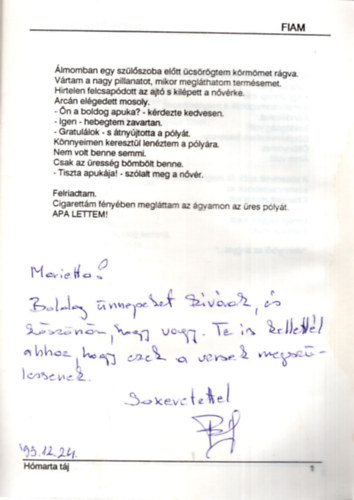 FIAM
Álmomban egy szülőszoba előtt ücsörögtem körmömet rágva.
Vártam a nagy pillanatot, mikor megláthatom termésemet.
Hirtelen felcsapódott az ajtó s kilépett a nővérke.
Arcán elégedett mosoly.
- Ön a boldog apuka? - kérdezte kedvesen.
- Igen - hebegtem zavartan.
- Gratulálok - s átnyújtotta a pólyát.
Könnyeimen keresztül lenéztem a pólyára.
Nem volt benne semmi.
Csak az üresség bömbölt benne.
- Tiszta apukája! - szólalt meg a nővér.
Felriadtam.
Cigarettám fényében megláttam az ágyamon az üres pólyát.
APA LETTEM!
Marietta!
Boldog ünnepeket kívánok, és
köszönöm, hogy vagy. Te is kellettél
ahhoz, hogy ezek a versek megszü-
lessenek.
Szeretettel
'93.12.24.
Hómarta táj
1